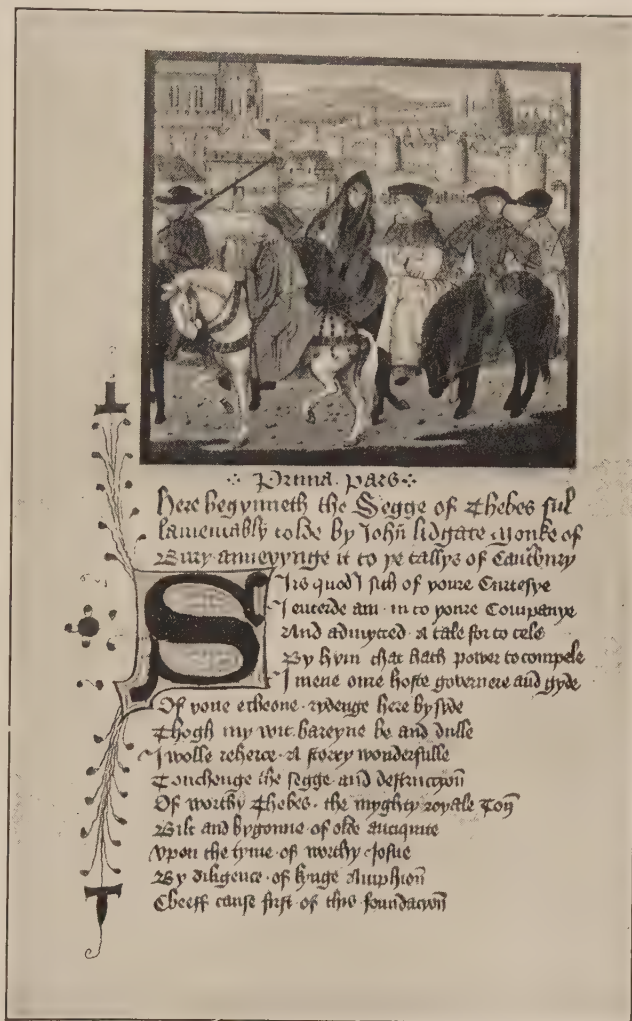 Prima pars
here begynneth the Segge of Thebes ful
lamentably tolde by Iohn lidgate Monke of
Bury annexynge it to þe tallys of Cauntbury
Sirs quod I sith of youre Curtesye
I entrede am in to youre Companye
And admytted A tale for to tele
By hym that hath power to compele
I mene oure hoste governere and gyde
Of youe echeone rydenge here by syde
Thogh my wit bareyne be and dulle
I wolle reherce A story wonderfulle
Touchenge the segge and destruccyon
Of worthy Thebes the myghty royale Ton
Bilt and bygonne of olde antiquite
Vpon the tyme of worthy Iosue
By diligence of kynge Amphion
Cheeff cause first of this foundacyon